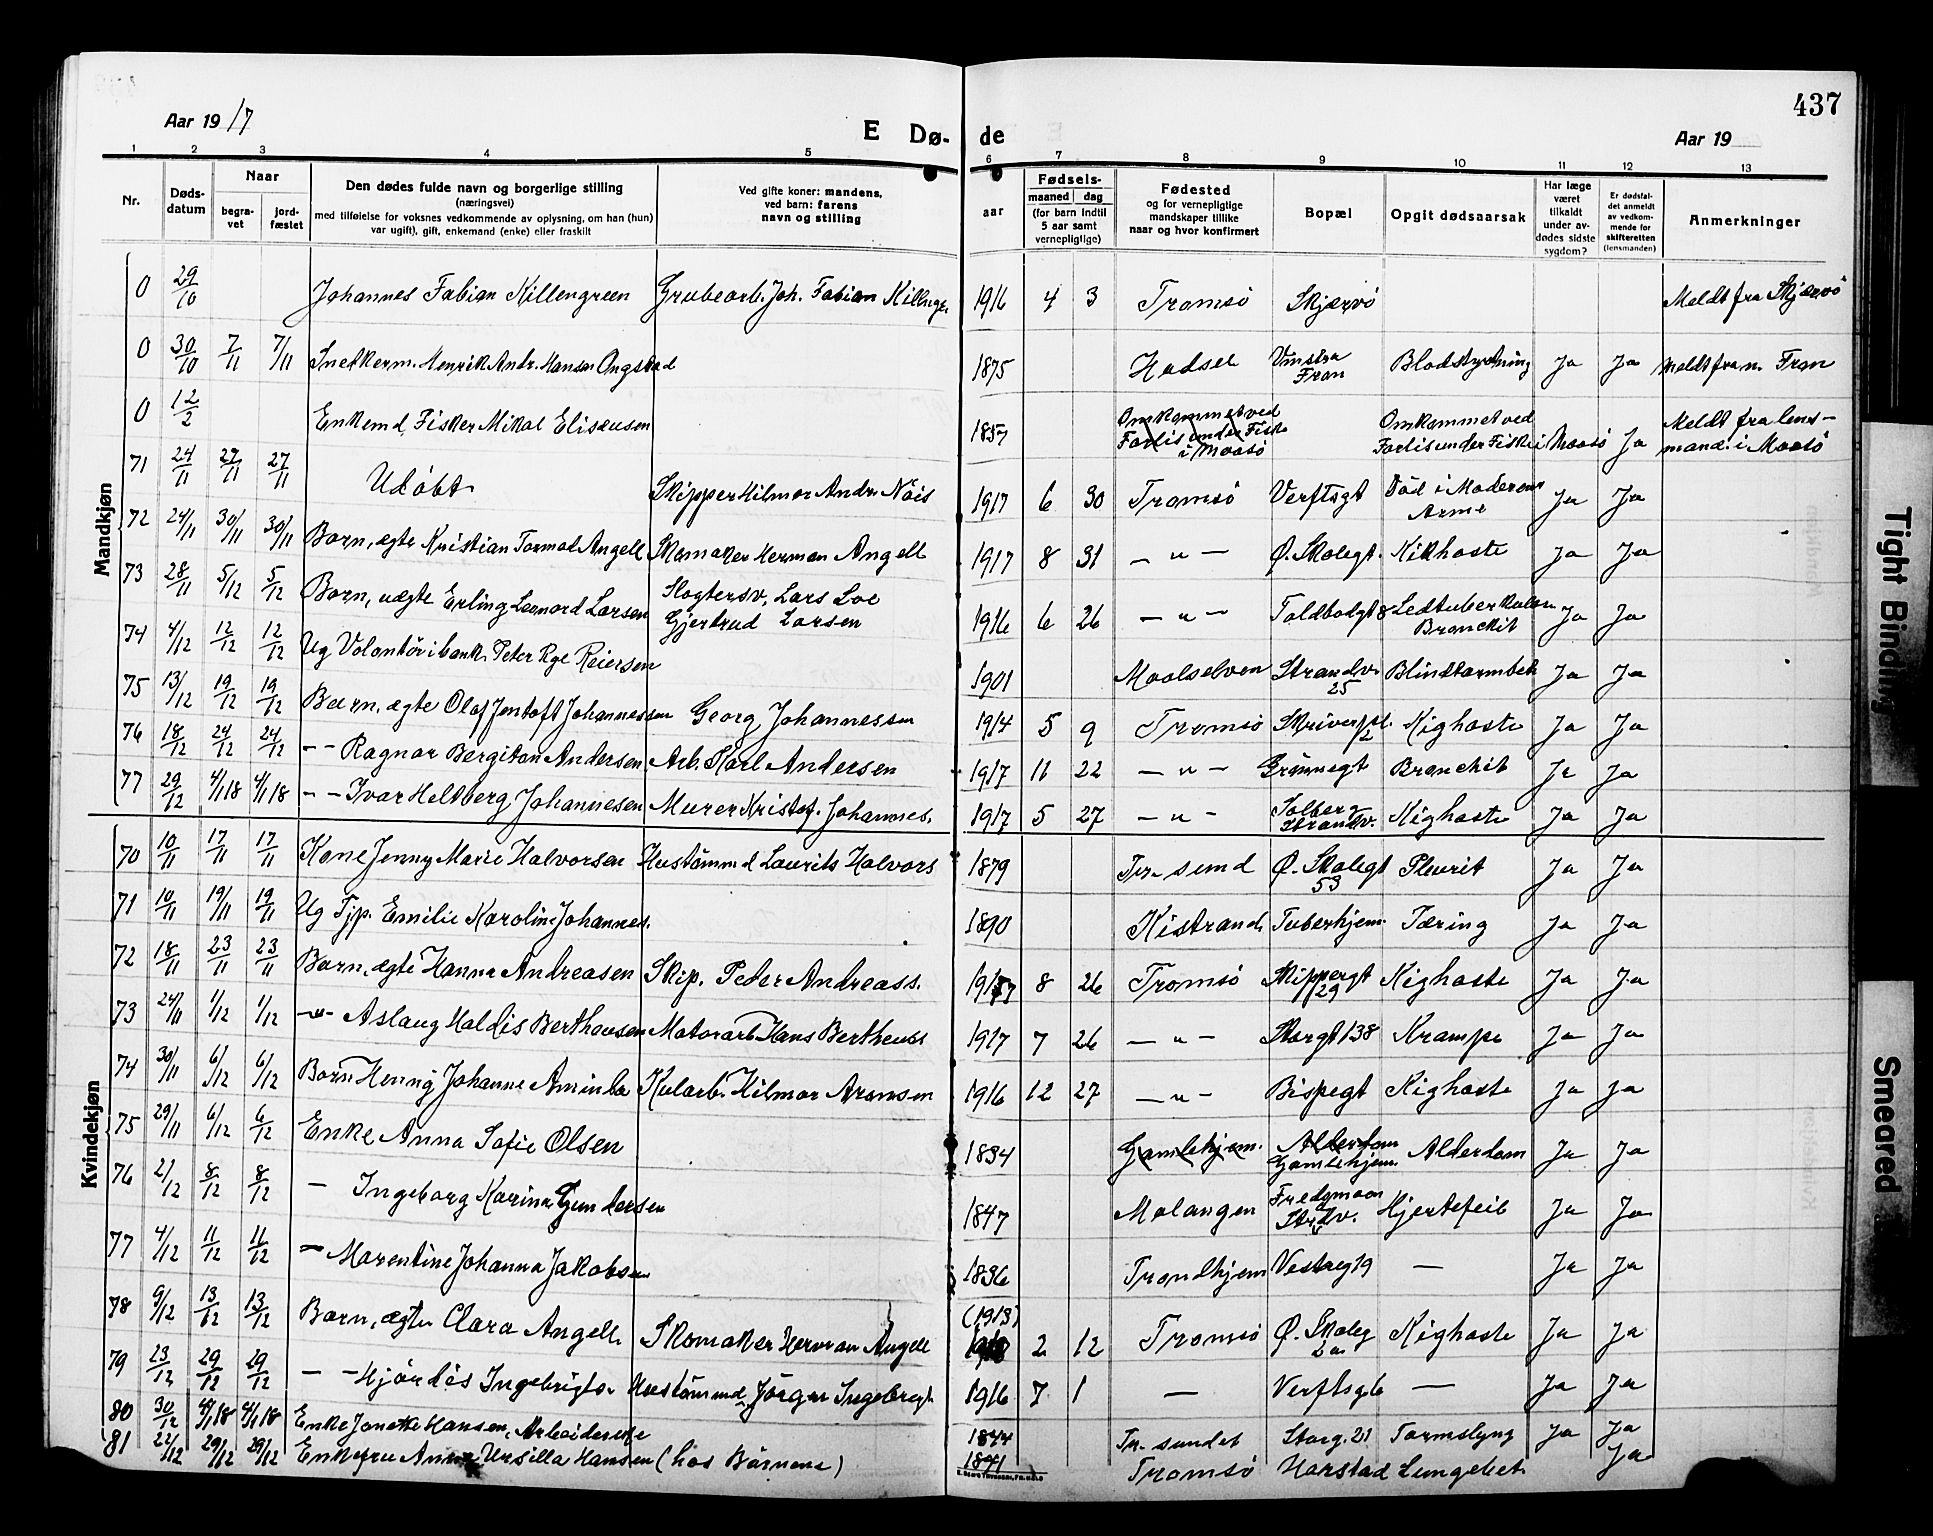 437
Aar 19 17
E Dø-
de
Aar 19
1 2 3 4 5 6 7 8 9 10 11 12 13
Nr.
Døds-
datum
Naar
begra-
vet
jord-
fæstet
Den dødes fulde navn og borgerlige stilling
(næringsvei)
med tilføielse for voksnes vedkommende av oplysning, om han (hun)
var ugift), gift, enkemand (enke) eller fraskilt
Ved gifte koner: mandens,
ved barn: farens
navn og stilling
aar
Fødsels-
maaned dag
(for barn indtil
5 aar samt
vernepligtige)
Fødested
og for vernepligtige
mandskaper tillike
naar og hvor konfirmert
Bopæl
Opgit dødsaarsak
Har læge
været
tilkaldt
under av-
dødes sidste
sygdom?
Er dødsfal-
det anmeldt
av vedkom-
mende for
skifteretten
(lensmanden)
Anmerkninger
Mandkjøn
0 29/10 Johannes Fabian Killengreen Grubearb. Joh. Fabian Killngr. 1916 4 3 Tromsö Skjærvö Meldt fra Skjærvö
0 30/10 7/11 7/11 Snekkerm. Henrik Andr. Hansen Ongstad 1875 Hadsel Vinstra Fron Blodstyrtning Ja Ja Meldt fra n. Fron
0 12/2 Enkemd. Fisker Mikal Elisæusen 1857 Omkommet ved Forlis under Fiske i Maasö Omkommet ved Forlis under Fiske i Maasö Ja Meldt fra lens-
mand. i Maasö
71 24/11 27/11 27/11 Udöbt Skipper Hilmar Andr. Nöis 1917 6 30 Tromsö Verftsgt Död i Moderens Arme Ja Ja
72 24/11 30/11 30/11 Barn, ægte Kristian Tormod Angell Skomaker Herman Angell 1917 8 31 — " — Ø. Skolegt. Kikhoste Ja Ja
73 28/11 5/12 5/12 Barn, uægte Erling Leonard Larsen Slogtersv. Lars Loe
Gjertrud Larsen 1916 6 26 — " — Toldbodgt 8 Ledtuberkulose Bronchit Ja Ja
74 4/12 12/12 12/12 Ug Volontör i bank Peter Rye Reiersen 1901 Maalselven Strandv. 25 Blindtarmbet Ja Ja
75 13/12 19/12 19/12 Barn, ægte Olaf Jentoft Johannessen Georg Johannessen 1914 5 9 Tromsö Skriverpl. 2 Kighoste Ja Ja
76 18/12 24/12 24/12 — — Ragnar Bergiton Andersen Arb. Karl Andersen 1917 11 22 — " — Grönnegt Bronchit Ja Ja
77 29/12 4/1 18 4/1 18 — — Ivar Heltberg Johannesen Murer Kristof. Johannes. 1917 5 27 — " — Solberg Strandv. Kighoste Ja Ja
Kvindekjøn
70 10/11 17/11 17/11 Kone Jenny Marie Halvorsen Hustömmd Laurits Halvors 1879 Tr.sund Ø. Skolegt 53 Pleurit Ja Ja
71 10/11 19/11 19/11 Ug Tjp. Emilie Karoline Johannes. 1890 Kistrand Tuberhjem. Tæring Ja Ja
72 18/11 23/11 23/11 Barn, ægte Hanna Andreasen Skip. Peder Andreass. 1917 8 26 Tromsö Skippergt 29 Kighoste Ja Ja
73 24/11 1/12 1/12 —"— Aslaug Haldis Berthousen Motorarb. Hans Bertheuss 1917 7 26 — " — Storgt 138 Krampe Ja Ja
74 30/11 6/12 6/12 Barn Henny Johanne Aminda Kularb. Hilmar Aronsen 1916 12 27 — " — Bispegt Kighoste Ja Ja
75 29/11 6/12 6/12 Enke Anna Sofie Olsen 1834 Gamlehjem. Alderdom Gamlehjem. Alderdom Ja Ja
76 2/12 8/12 8/12 — Ingeborg Karina Gundersen 1847 Malangen Fredgmoon Strdv. Hjertefeil Ja Ja
77 4/12 11/12 11/12 — Marentine Johanna Jakobsen 1836 Trondhjem Vestreg 19 — Ja Ja
78 9/12 13/12 13/12 Barn, ægte Clara Angell Skomaker Herman Angell (1913) 2 12 Tromsö Ø. Skoleg 2a Kighoste Ja Ja
79 23/12 29/12 29/12 — — Hjördis Ingebrigts. Hustömmd Jörgen Ingebrigt. 1916 7 1 — Verftsgt — Ja Ja
80 30/12 4/1 18 4/1 18 Enke Jonette Hansen, Arbeiderske 1844 Tr.sundet Storg. 21 Tarmslyng Ja Ja
81 22/12 29/12 29/12 Enkefrue Anna Ursilla Hansen (hos Börnene) 1841 Tromsö Harstad Lungebet Ja
Tight Binding
Smeared